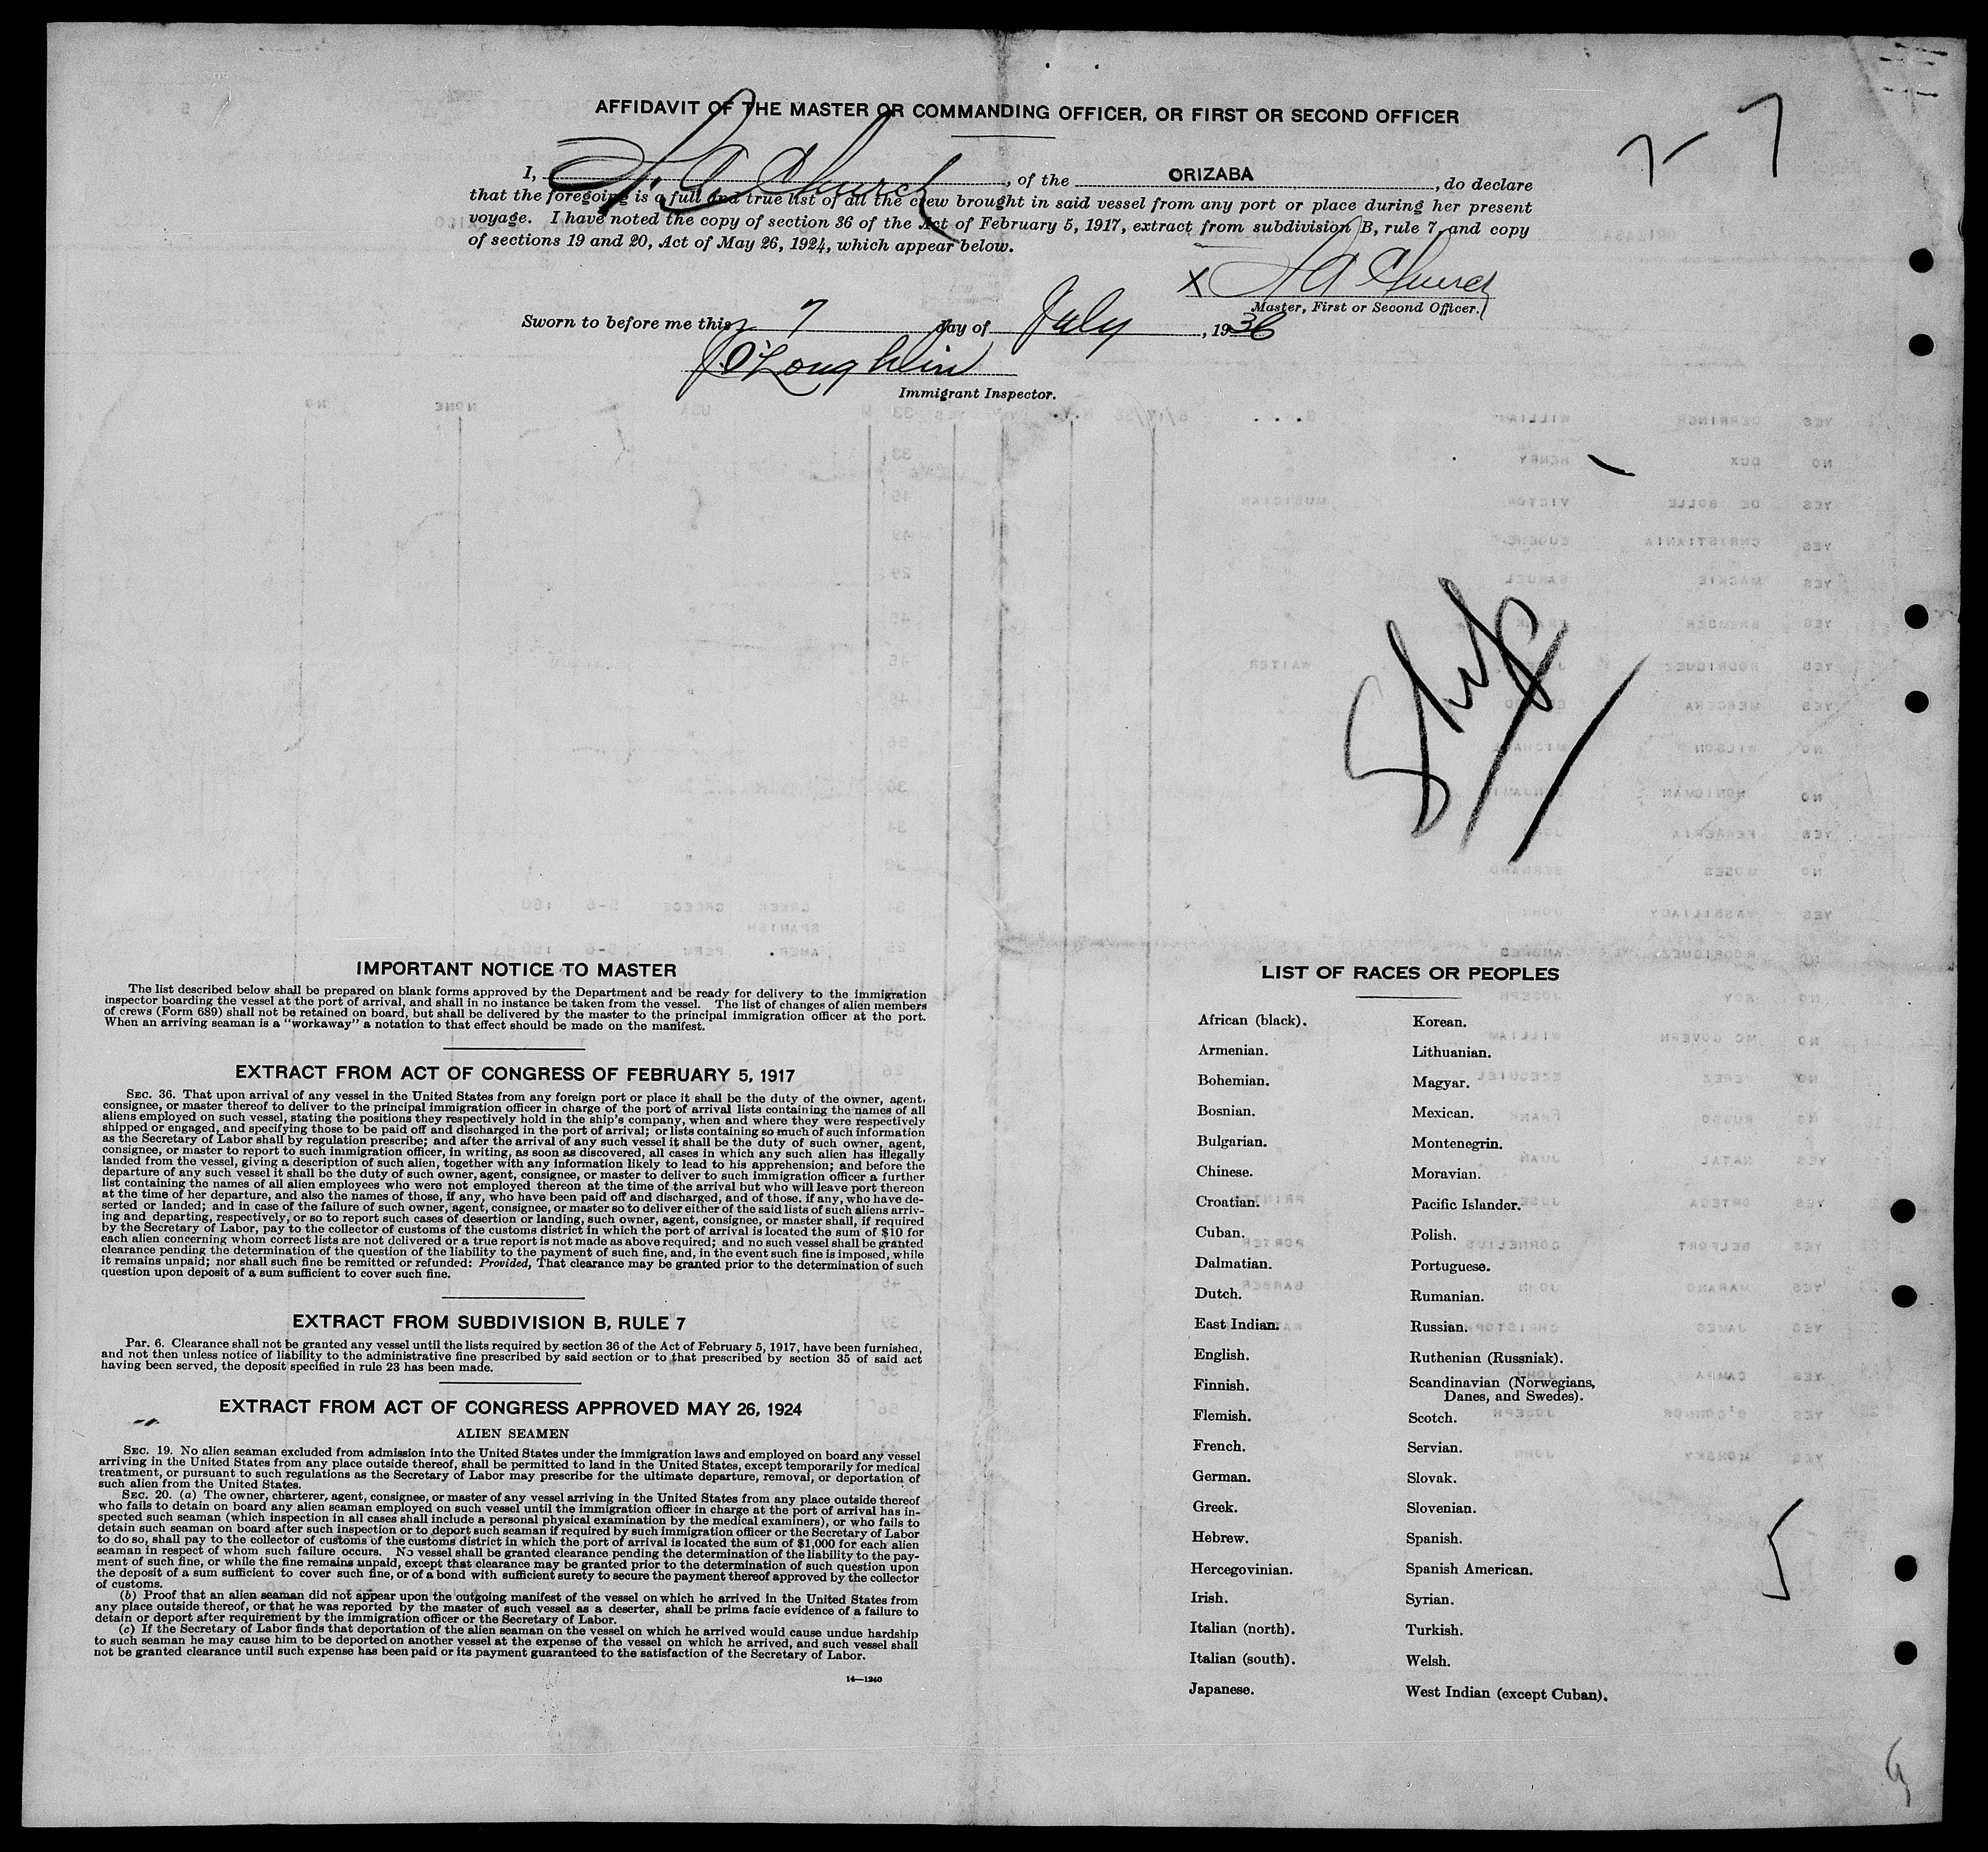 AFFIDAVIT OF THE MASTER OR COMMANDING OFFICER, OR FIRST OR SECOND OFFICER
7-7
I, Church, of the ORIZABA, do declare
that the foregoing is a full and true list of all the crew brought in said vessel from any port or place during her present
voyage. I have noted the copy of section 36 of the Act of February 5, 1917, extract from subdivision B, rule 7, and copy
of sections 19 and 20, Act of May 26, 1924, which appear below.
X A Church
Master, First or Second Officer.
Sworn to before me this 7 day of July, 1936
J O'Loughlin
Immigrant Inspector.
Ship
IMPORTANT NOTICE TO MASTER
The list described below shall be prepared on blank forms approved by the Department and be ready for delivery to the immigration
inspector boarding the vessel at the port of arrival, and shall in no instance be taken from the vessel. The list of changes of alien members
of crews (Form 689) shall not be retained on board, but shall be delivered by the master to the principal immigration officer at the port.
When an arriving seaman is a "workaway" a notation to that effect should be made on the manifest.
EXTRACT FROM ACT OF CONGRESS OF FEBRUARY 5, 1917
SEC. 36. That upon arrival of any vessel in the United States from any foreign port or place it shall be the duty of the owner, agent,
consignee, or master thereof to deliver to the principal immigration officer in charge of the port of arrival lists containing the names of all
aliens employed on such vessel, stating the positions they respectively hold in the ship's company, when and where they were respectively
shipped or engaged, and specifying those to be paid off and discharged in the port of arrival; or lists containing so much of such information
as the Secretary of Labor shall by regulation prescribe; and after the arrival of any such vessel it shall be the duty of such owner, agent,
consignee, or master to report to such immigration officer, in writing, as soon as discovered, all cases in which any such alien has illegally
landed from the vessel, giving a description of such alien, together with any information likely to lead to his apprehension; and before the
departure of any such vessel it shall be the duty of such owner, agent, consignee, or master to deliver to such immigration officer a further
list containing the names of all alien employees who were not employed thereon at the time of the arrival but who will leave port thereon
at the time of her departure, and also the names of those, if any, who have been paid off and discharged, and of those, if any, who have de-
serted or landed; and in case of the failure of such owner, agent, consignee, or master so to deliver either of the said lists of such aliens arriv-
ing and departing, respectively, or so to report such cases of desertion or landing, such owner, agent, consignee, or master shall, if required
by the Secretary of Labor, pay to the collector of customs of the customs district in which the port of arrival is located the sum of $10 for
each alien concerning whom correct lists are not delivered or a true report is not made as above required; and no such vessel shall be granted
clearance pending the determination of the question of the liability to the payment of such fine, and, in the event such fine is imposed, while
it remains unpaid; nor shall such fine be remitted or refunded: Provided, That clearance may be granted prior to the determination of such
question upon deposit of a sum sufficient to cover such fine.
EXTRACT FROM SUBDIVISION B, RULE 7
Par. 6. Clearance shall not be granted any vessel until the lists required by section 36 of the Act of February 5, 1917, have been furnished,
and not then unless notice of liability to the administrative fine prescribed by said section or to that prescribed by section 35 of said act
having been served, the deposit specified in rule 23 has been made.
EXTRACT FROM ACT OF CONGRESS APPROVED MAY 26, 1924
ALIEN SEAMEN
SEC. 19. No alien seaman excluded from admission into the United States under the immigration laws and employed on board any vessel
arriving in the United States from any place outside thereof, shall be permitted to land in the United States, except temporarily for medical
treatment, or pursuant to such regulations as the Secretary of Labor may prescribe for the ultimate departure, removal, or deportation of
such alien from the United States.
SEC. 20. (a) The owner, charterer, agent, consignee, or master of any vessel arriving in the United States from any place outside thereof
who fails to detain on board any alien seaman employed on such vessel until the immigration officer in charge at the port of arrival has in-
spected such seaman (which inspection in all cases shall include a personal physical examination by the medical examiners), or who fails to
detain such seaman on board after such inspection or to deport such seaman if required by such immigration officer or the Secretary of Labor
to do so, shall pay to the collector of customs of the customs district in which the port of arrival is located the sum of $1,000 for each alien
seaman in respect of whom such failure occurs. No vessel shall be granted clearance pending the determination of the liability to the pay-
ment of such fine, or while the fine remains unpaid, except that clearance may be granted prior to the determination of such question upon
the deposit of a sum sufficient to cover such fine, or of a bond with sufficient surety to secure the payment thereof approved by the collector
of customs.
(b) Proof that an alien seaman did not appear upon the outgoing manifest of the vessel on which he arrived in the United States from
any place outside thereof, or that he was reported by the master of such vessel as a deserter, shall be prima facie evidence of a failure to
detain or deport after requirement by the immigration officer or the Secretary of Labor.
(c) If the Secretary of Labor finds that deportation of the alien seaman on the vessel on which he arrived would cause undue hardship
to such seaman he may cause him to be deported on another vessel at the expense of the vessel on which he arrived, and such vessel shall
not be granted clearance until such expense has been paid or its payment guaranteed to the satisfaction of the Secretary of Labor.
14—1240
LIST OF RACES OR PEOPLES
African (black).
Armenian.
Bohemian.
Bosnian.
Bulgarian.
Chinese.
Croatian.
Cuban.
Dalmatian.
Dutch.
East Indian.
English.
Finnish.
Flemish.
French.
German.
Greek.
Hebrew.
Hercegovinian.
Irish.
Italian (north).
Italian (south).
Japanese.
Korean.
Lithuanian.
Magyar.
Mexican.
Montenegrin.
Moravian.
Pacific Islander.
Polish.
Portuguese.
Rumanian.
Russian.
Ruthenian (Russniak).
Scandinavian (Norwegians,
Danes, and Swedes).
Scotch.
Servian.
Slovak.
Slovenian.
Spanish.
Spanish American.
Syrian.
Turkish.
Welsh.
West Indian (except Cuban).
5